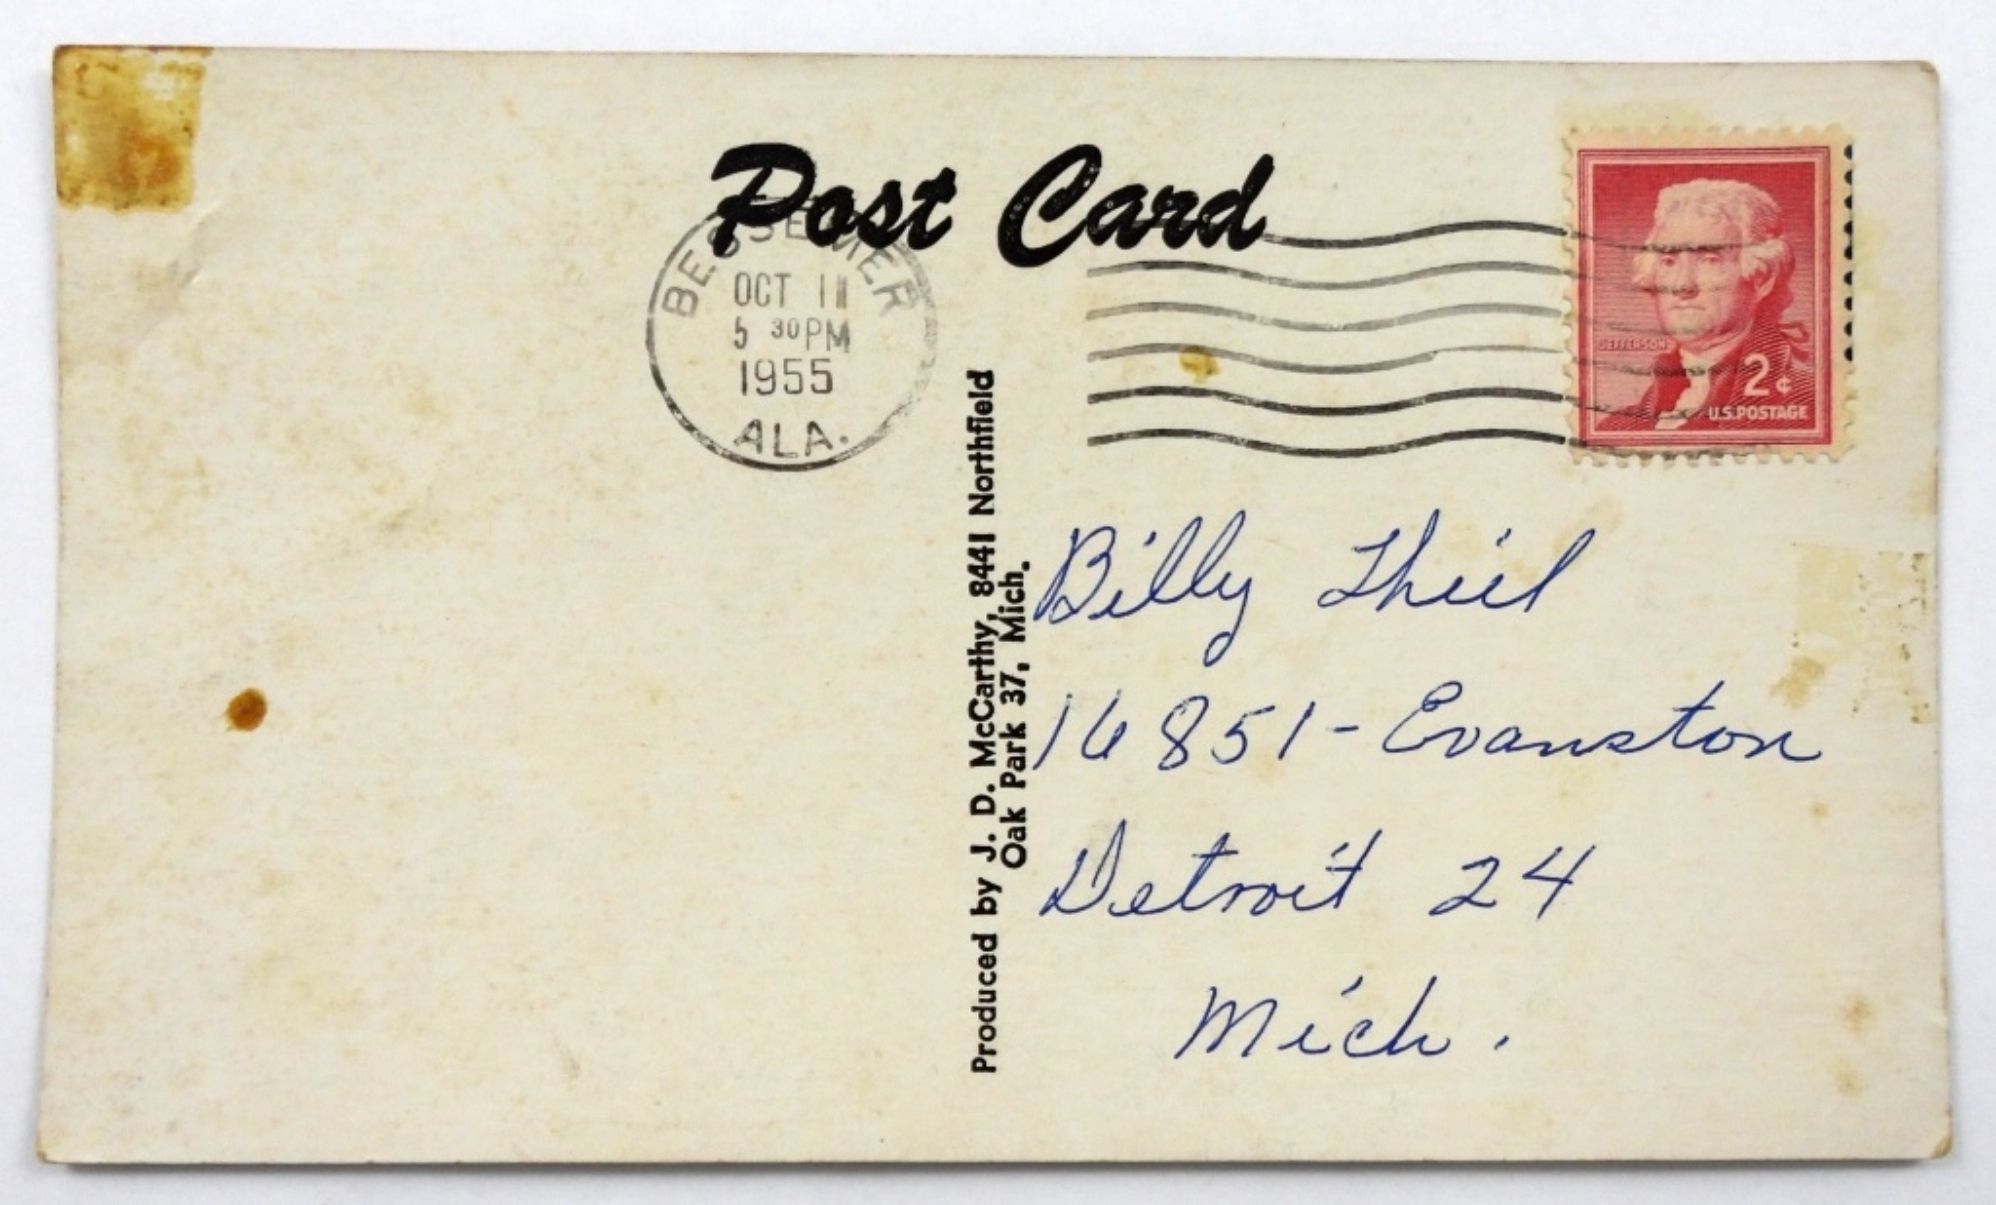 Post Card
BESSEMER
OCT 11
5 30 PM
1955
ALA.
JEFFERSON
2¢
U.S. POSTAGE
Produced by J. D. McCarthy, 8441 Northfield
Oak Park 37, Mich.
Billy Thiel
16851 - Evanston
Detroit 24
Mich.